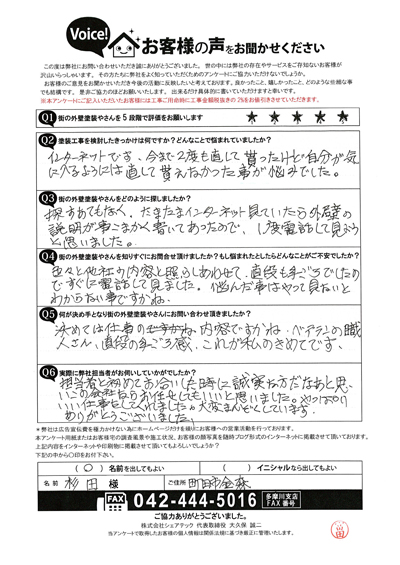 Voice!
お客様の声をお聞かせください
この度は弊社にお問い合わせいただき誠にありがとうございました。世の中には弊社の存在やサービスをご存知ないお客様が
沢山いらっしゃいます。その方たちに弊社をよく知っていただくためのアンケートにご協力いただけないでしょうか。
お客様のご意見をお聞かせいただき今後の活動に反映したいと考えております。良かったこと、嬉しかったこと、どのような些細な事
でも結構です。是非ご協力のほどお願いいたします。出来るだけ具体的に書いていただけますと幸いです。
※本アンケートにご記入いただいたお客様には工事ご用命時に工事金額税抜きの2%をお値引きさせていただきます。
Q1 街の外壁塗装やさんを5段階で評価をお願いします ★ ★ ★ ★ ★
Q2 塗装工事を検討したきっかけは何ですか?どんなことで悩まれていましたか?
インターネットです、今まで2度も直して貰ったけど自分が気
に入るようには直して貰えなかった事が悩みでした。
Q3 街の外壁塗装やさんをどのように探しましたか?
探すあてもなく、たまたまインターネット見ていたら外壁の
説明が事こまかく書いてあったので、1度電話して見ようう
と思いました。
Q4 街の外壁塗装やさんを知りすぐにお問合せ頂けましたか?もし悩まれたとしたらどんなことがご不安でしたか?
色々と他社の内容と照らしあわせて、直役も手ごろでしたの
ですぐに電話して見ました。悩んだ事はやって見ないと
わからない事ですかね。
Q5 何が決め手となり街の外壁塗装やさんにお問い合わせ頂きましたか?
決めては仕事の内容ですかね、ベテランの職
人さん、直役の手ごろ感、これが私のきめてです。
Q6 実際に弊社担当者がお伺いしていかがでしたか?
担当者と初めてお会いした時に誠実な方だなあと思い
この会社ならお任せしてもいいと思いました。やっぱり
いい仕事をしてくれました。大変まんぞくしています。
ありがとうございました。
*弊社は広告宣伝費を極力かけない為にホームページだけを頼りにお客様への営業活動を行っております。
本アンケート用紙またはお客様宅の調査風景や施工状況、お客様の顔写真を随時ブログ形式のインターネットに掲載させて頂いております。
上記内容をインターネットや印刷物に掲載させて頂いてもよろしいでしょうか?
下記の中から○印をお付下さい。
(○)名前を出してもよい ( )イニシャルなら出してもよい
名前 杉田 様 ご住所 町田市金森
FAX 042-444-5016 多摩川支店 FAX番号
ご協力ありがとうございました。
株式会社シェアテック 代表取締役 大久保 誠二
当アンケートで取得したお客様の個人情報は関係法規に基づき厳正に管理いたします。